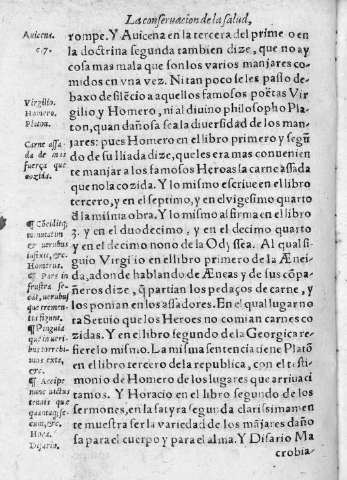 La conseruacion de la salud,
Auicena.
c. 7.
Virgilio.
Homero.
Platon.
Carne assa
da de mas
fuerça que
cozida.
Homerus.
¶ Pars in
frustra se
cãt, uerubus
que tremen-
tia figunt.
¶ Pinguia
que in ueri
bus torrebi-
mus exta,
etc.
¶ Accipe
nunc uictus
tenuis que
quantaq́; se-
cum, etc.
Hora.
Disario.
rompe. Y Auicena en la tercera del primero en
la doctrina segunda tambien dize, que no ay
cosa mas mala que son los varios manjares co-
midos en vna vez. Ni tan poco se les passo de-
baxo de silẽcio a aquellos famosos poëtas Vir
gilio, y Homero, ni al diuino philosopho Pla-
ton, quan dañosa sea la diuersidad de los man-
jares: pues Homero en el libro primero y segũ
do de su Iliada dize, que les era mas conuenien
te manjar a los famosos Heroas la carne assada
que no la cozida. Y lo mismo escriue en el libro
tercero, y en el septimo, y en el vigesimo quarto
d̃ la misma obra. Y lo mismo afirma en el libro
3. y en el duodecimo, y en el decimo quarto
y en el decimo nono de la Odyssea. Al qual si-
guio Virgilio en el libro primero de la Ænei-
da, adonde hablando de Æneas y de sus cõpa-
ñeros dize, q̃ partian los pedaços de carne, y
los ponian en los assadores. En el qual lugar no
ta Seruio que los Heroes no comian carnes co
zidas. Y en el libro segundo de la Georgica re
fiere lo mismo. La misma sentencia tiene Platõ
en el libro tercero de la republica, con el testi-
monio de Homero de los lugares que arriua ci
tamos. Y Horacio en el libro segundo de los
sermones, en la satyra segunda clarissimamen
te muestra ser la variedad de los mãjares daño
sa para el cuerpo y para el alma. Y Disario Ma
crobia-